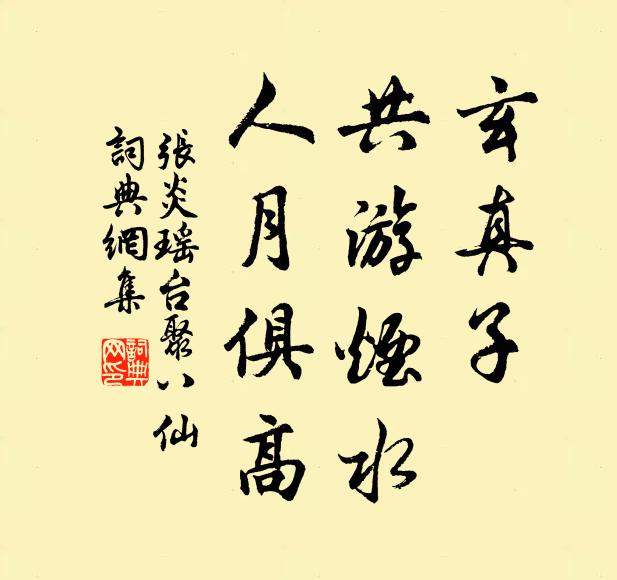 玄真子
共游煙水
人月俱高
張炎瑶台聚八仙
詞典網集
詞典
网印